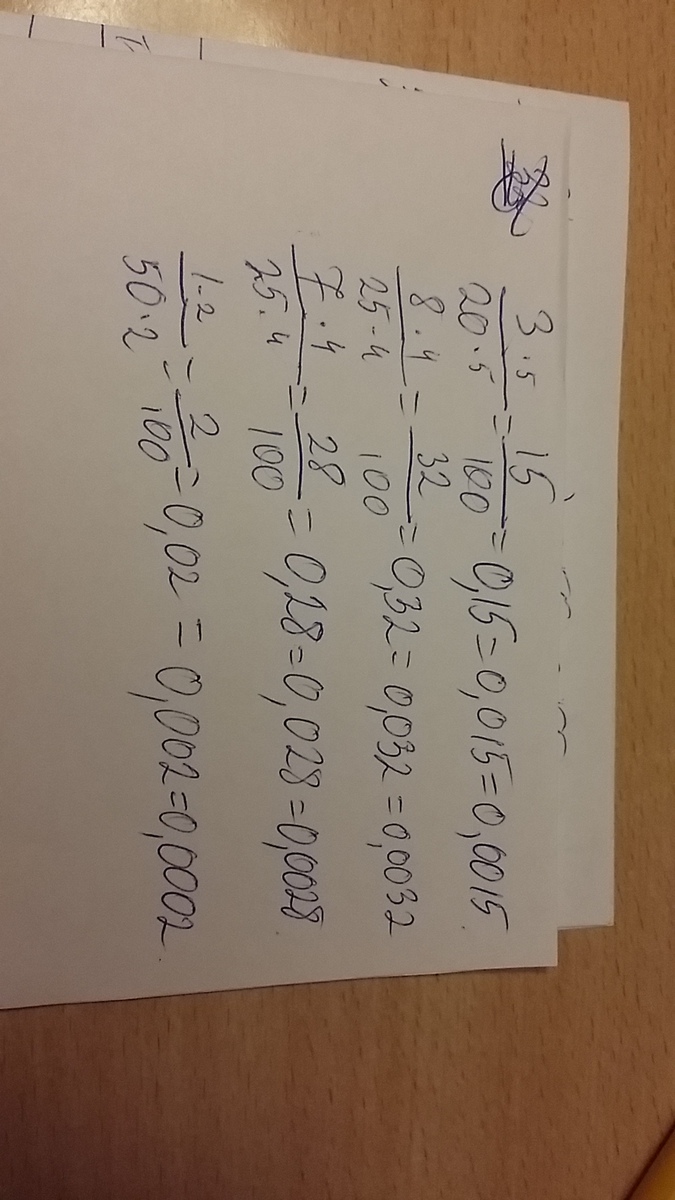 3·5/20·5 = 15/100 = 0,15 = 0,015 = 0,0015
8·4/25·4 = 32/100 = 0,32 = 0,032 = 0,0032
7·4/25·4 = 28/100 = 0,28 = 0,028 = 0,0028
1·2/50·2 = 2/100 = 0,02 = 0,002 = 0,0002